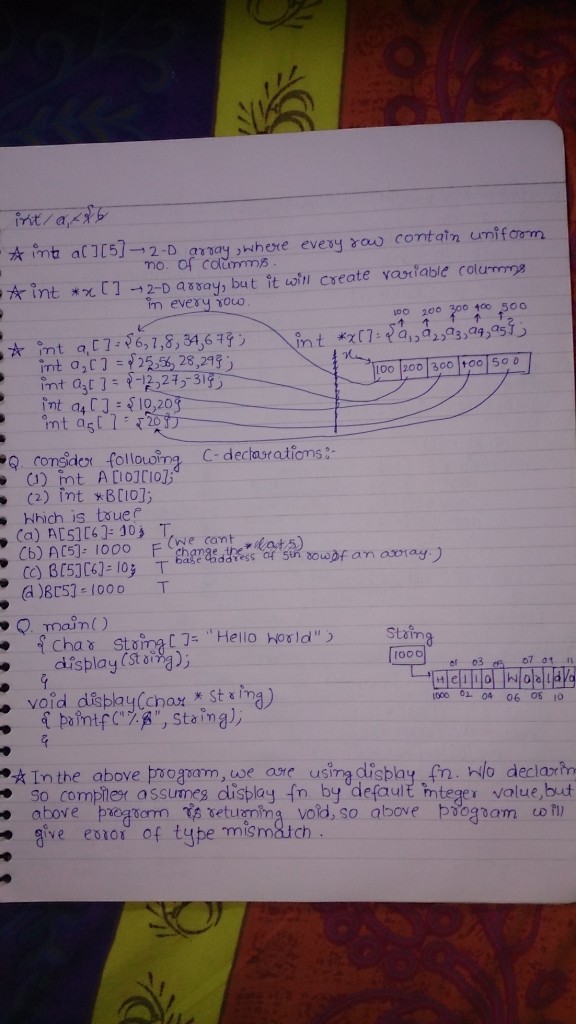 ☆ int a[][5] → 2-D array, where every row contain uniform
no. of columns.
☆ int *x[] → 2-D array, but it will create variable columns
in every row.
100 200 300 400 500
☆ int a₁[] = {6,7,8,34,67}; int *x[] = {a₁, a₂, a₃, a₄, a₅};
int a₂[] = {25,56,28,29}; x
int a₃[] = {-12,27,-31}; 100 200 300 400 500
int a₄[] = {10,20}
int a₅[] = {20};
Q. consider following C-declarations:-
(1) int A[10][10];
(2) int *B[10];
Which is true?
(a) A[5][6] = 10; T
(b) A[5] = 1000 F (we cant change the *(a+5)
base address of 5th row of an array.)
(c) B[5][6] = 10; T
(d) B[5] = 1000 T
Q. main()
{ char string[] = "Hello World";
display(string);
}
void display(char * string)
{ printf("%s", string);
}
String
1000
01 03 05 07 09 11
H e l l o W o r l d \0
1000 02 04 06 08 10
☆ In the above program, we are using display fn. w/o declarin
so compiler assumes display fn by default integer value, but
above program is returning void, so above program will
give error of type mismatch.